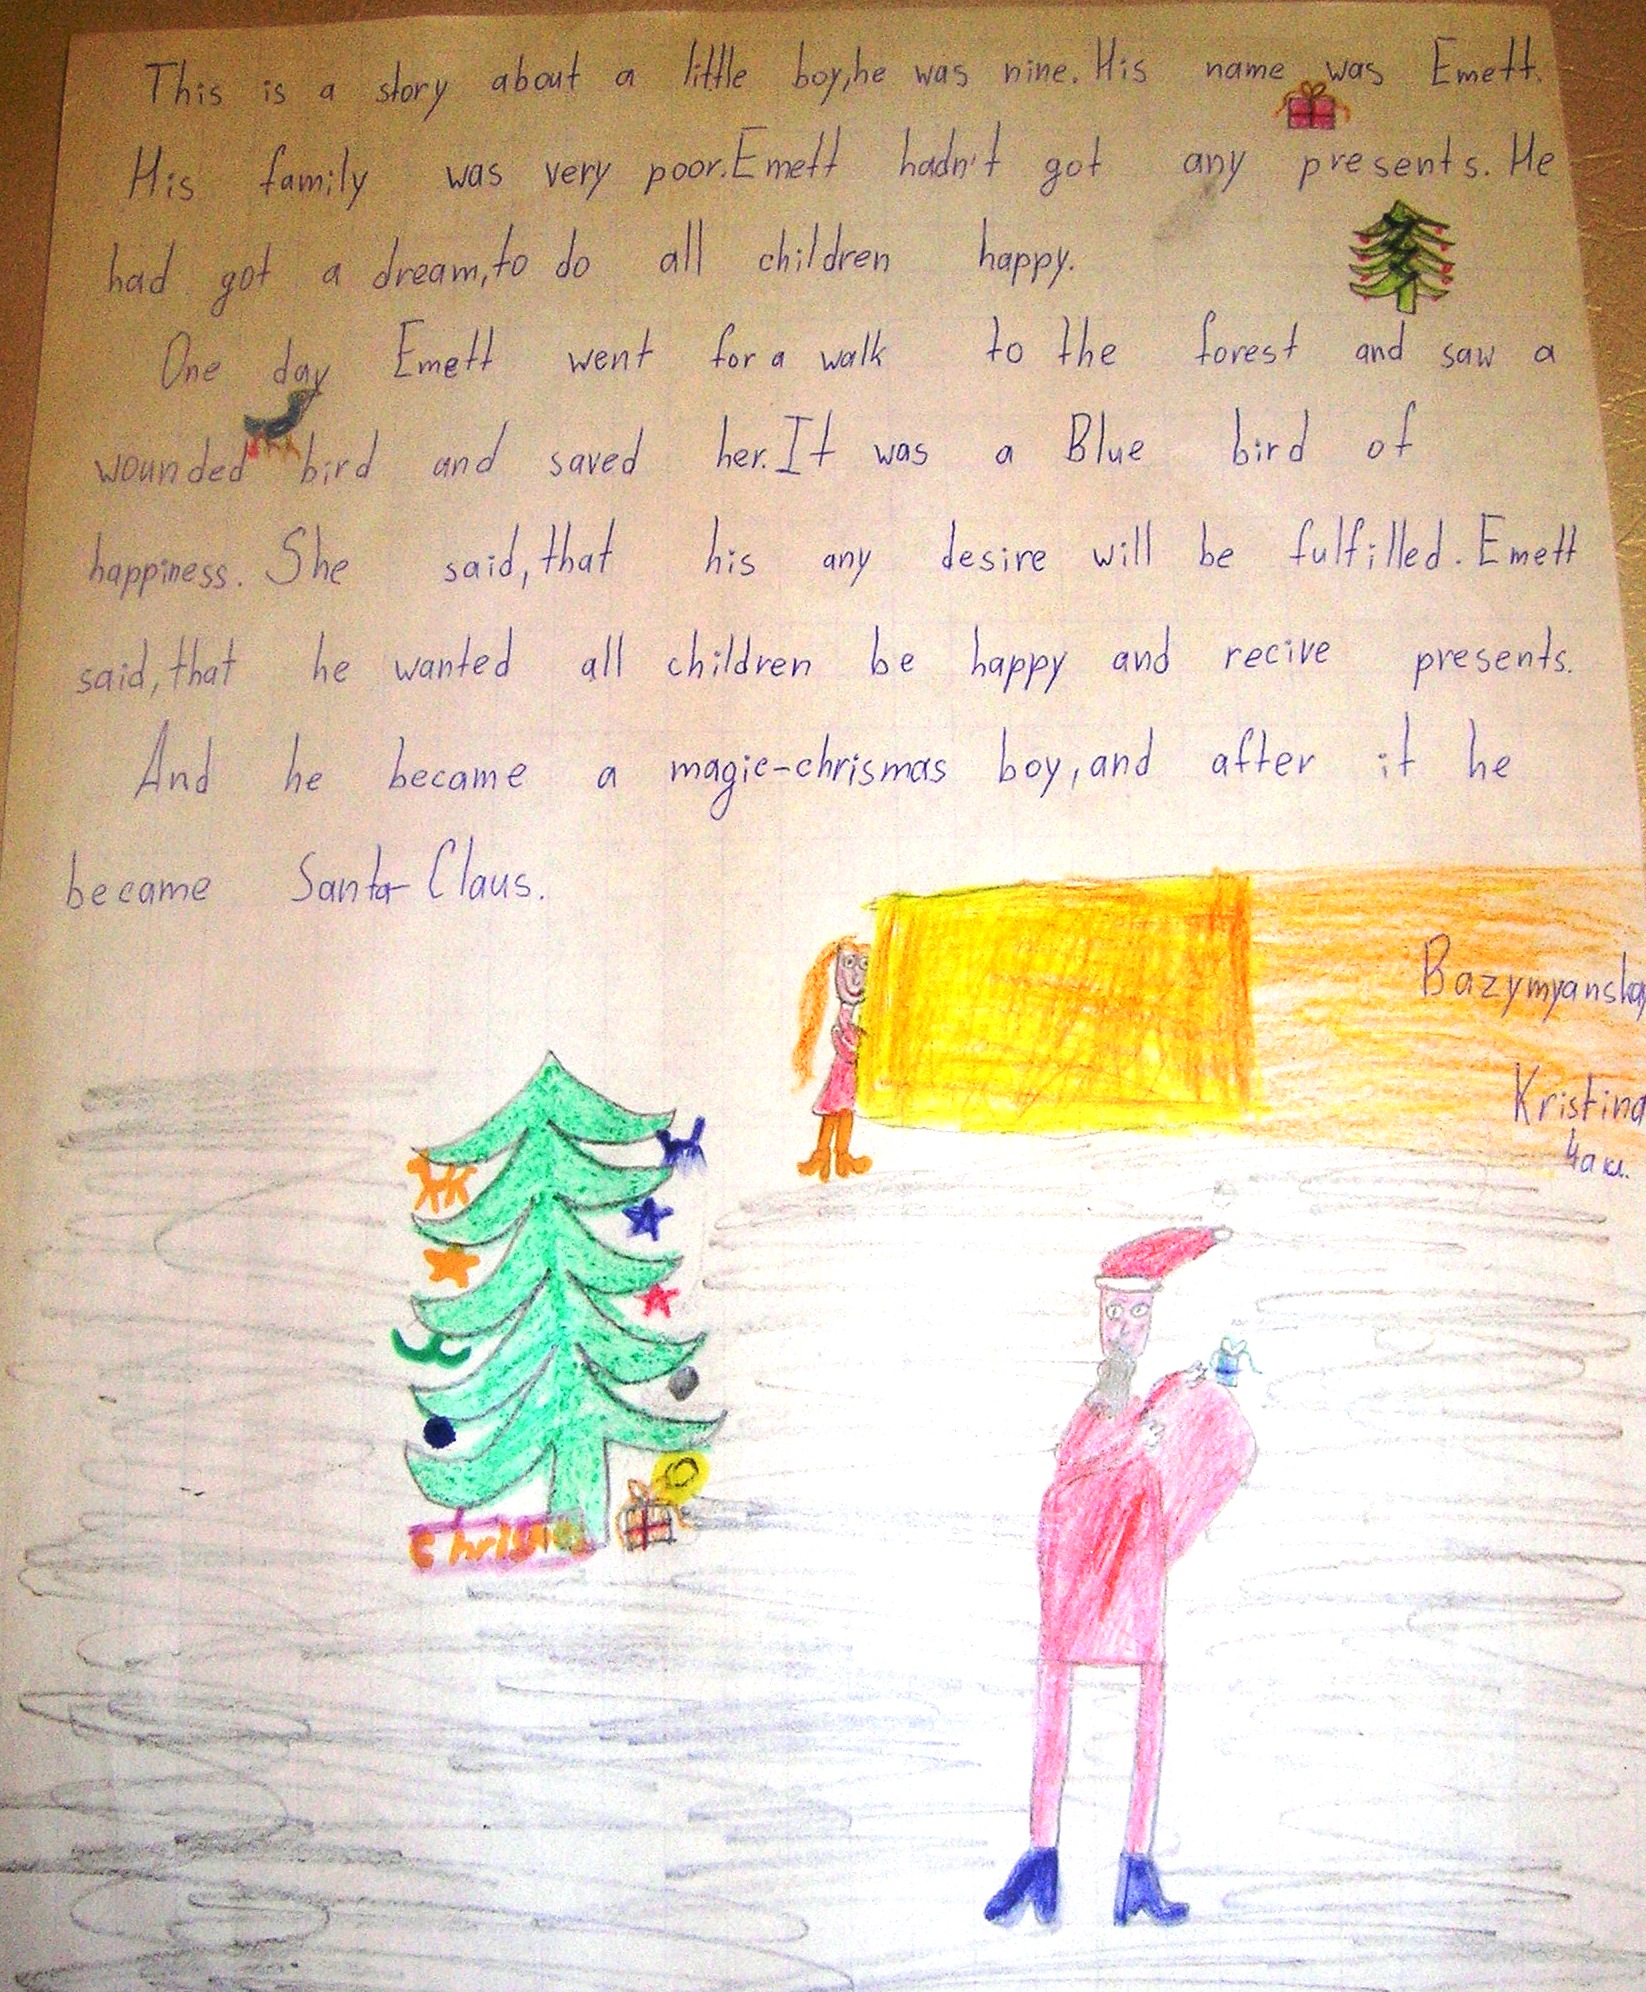 This is a story about a little boy,he was nine. His name was Emett.
His family was very poor.Emett hadn't got any presents. He
had got a dream,to do all children happy.
One day Emett went for a walk to the forest and saw a
wounded bird and saved her.It was a Blue bird of
happiness. She said,that his any desire will be fulfilled. Emett
said,that he wanted all children be happy and recive presents.
And he became a magic-chrismas boy,and after it he
became Santa Claus.
Kristina